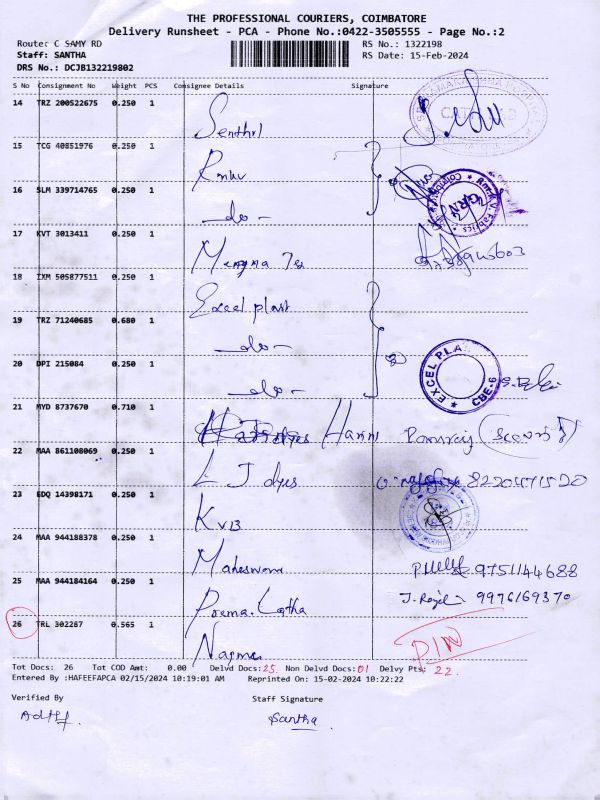 THE PROFESSIONAL COURIERS, COIMBATORE
Delivery Runsheet - PCA - Phone No.:0422-3505555 - Page No.:2
Route: C SAMY RD
RS No.: 1322198
Staff: SANTHA
RS Date: 15-Feb-2024
DRS No.: DCJB132219802
S No Consignment No Weight PCS Consignee Details Signature
14 TRZ 200522675 0.250 1 Senthil
15 TCG 40851976 0.250 1 Rmkv
16 SLM 339714765 0.250 1 -do-
17 KVT 3013411 0.250 1
18 IXM 505877511 0.250 1 Excel plast
19 TRZ 71240685 0.680 1 -do-
20 DPI 215084 0.250 1 -do-
EXCEL PLA CBE-6
21 MYD 8737670 0.710 1 Harini
22 MAA 861108069 0.250 1 L J dyes 8220471520
23 EDQ 14398171 0.250 1 KVB
24 MAA 944188378 0.250 1 Maheswari 9751144688
25 MAA 944184164 0.250 1 Prema Latha 9976169370
26 TRL 302287 0.565 1 Nagma PIN
Tot Docs: 26 Tot COD Amt: 0.00 Delvd Docs: 25. Non Delvd Docs: 01 Delvy Pts: 22.
Entered By :HAFEEFAPCA 02/15/2024 10:19:01 AM Reprinted On: 15-02-2024 10:22:22
Verified By Staff Signature
Santha